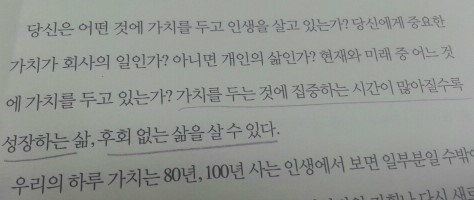 당신은 어떤 것에 가치를 두고 인생을 살고 있는가? 당신에게 중요한
가치가 회사의 일인가? 아니면 개인의 삶인가? 현재와 미래 중 어느 것
에 가치를 두고 있는가? 가치를 두는 것에 집중하는 시간이 많아질수록
성장하는 삶, 후회 없는 삶을 살 수 있다.
우리의 하루 가치는 80년, 100년 사는 인생에서 보면 일부분일 수밖에